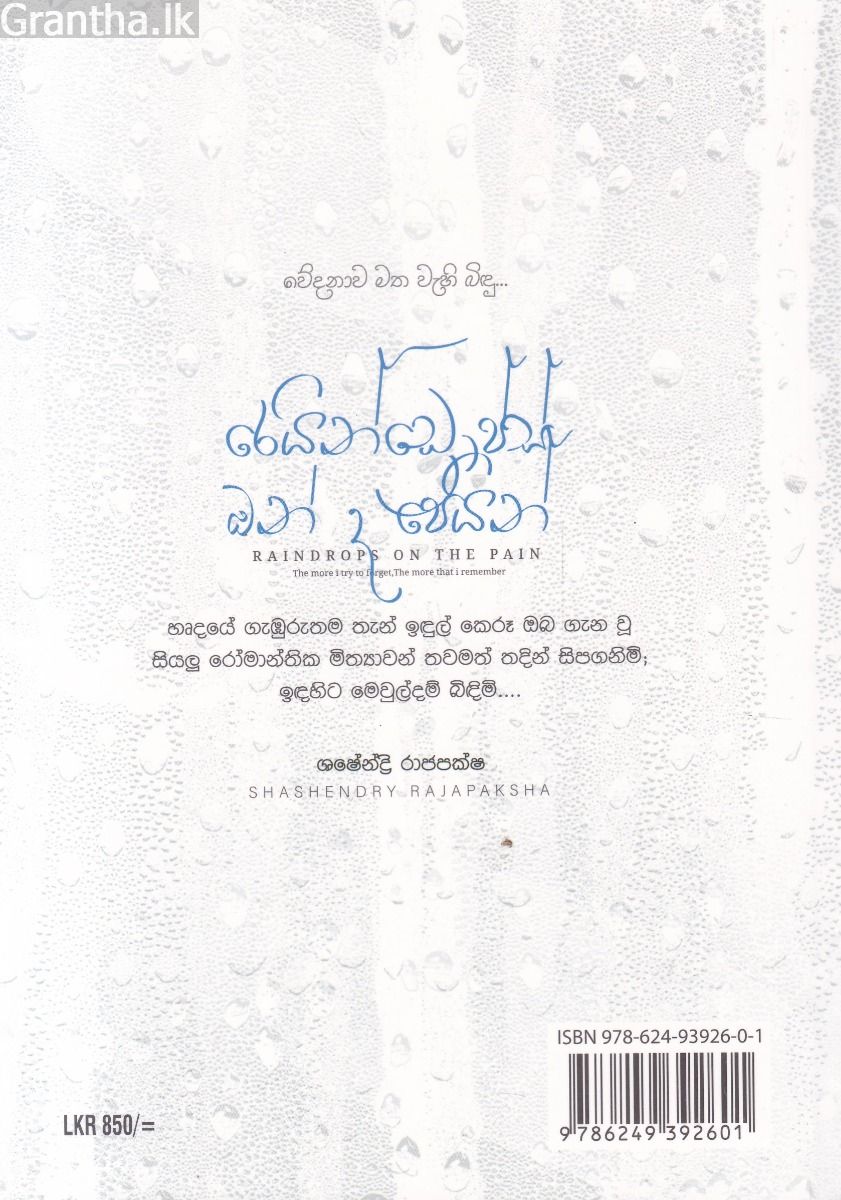 Grantha.lk
වේදනාව මත වැහි බිඳු...
රෙයින්ඩ්‍රොප්ස්
ඔන් ද පේයින්
RAINDROPS ON THE PAIN
The more i try to forget,The more that i remember
හෘදයේ ගැඹුරුතම තැන් ඉඳුල් කෙරූ ඔබ ගැන වූ
සියලු රෝමාන්තික මිත්‍යාවන් තවමත් තදින් සිපගනිමි;
ඉඳහිට මෙවුල්දම් බිඳිමි....
ශෂේන්ද්‍රි රාජපක්ෂ
SHASHENDRY RAJAPAKSHA
ISBN 978-624-93926-0-1
LKR 850/=
9 786249 392601